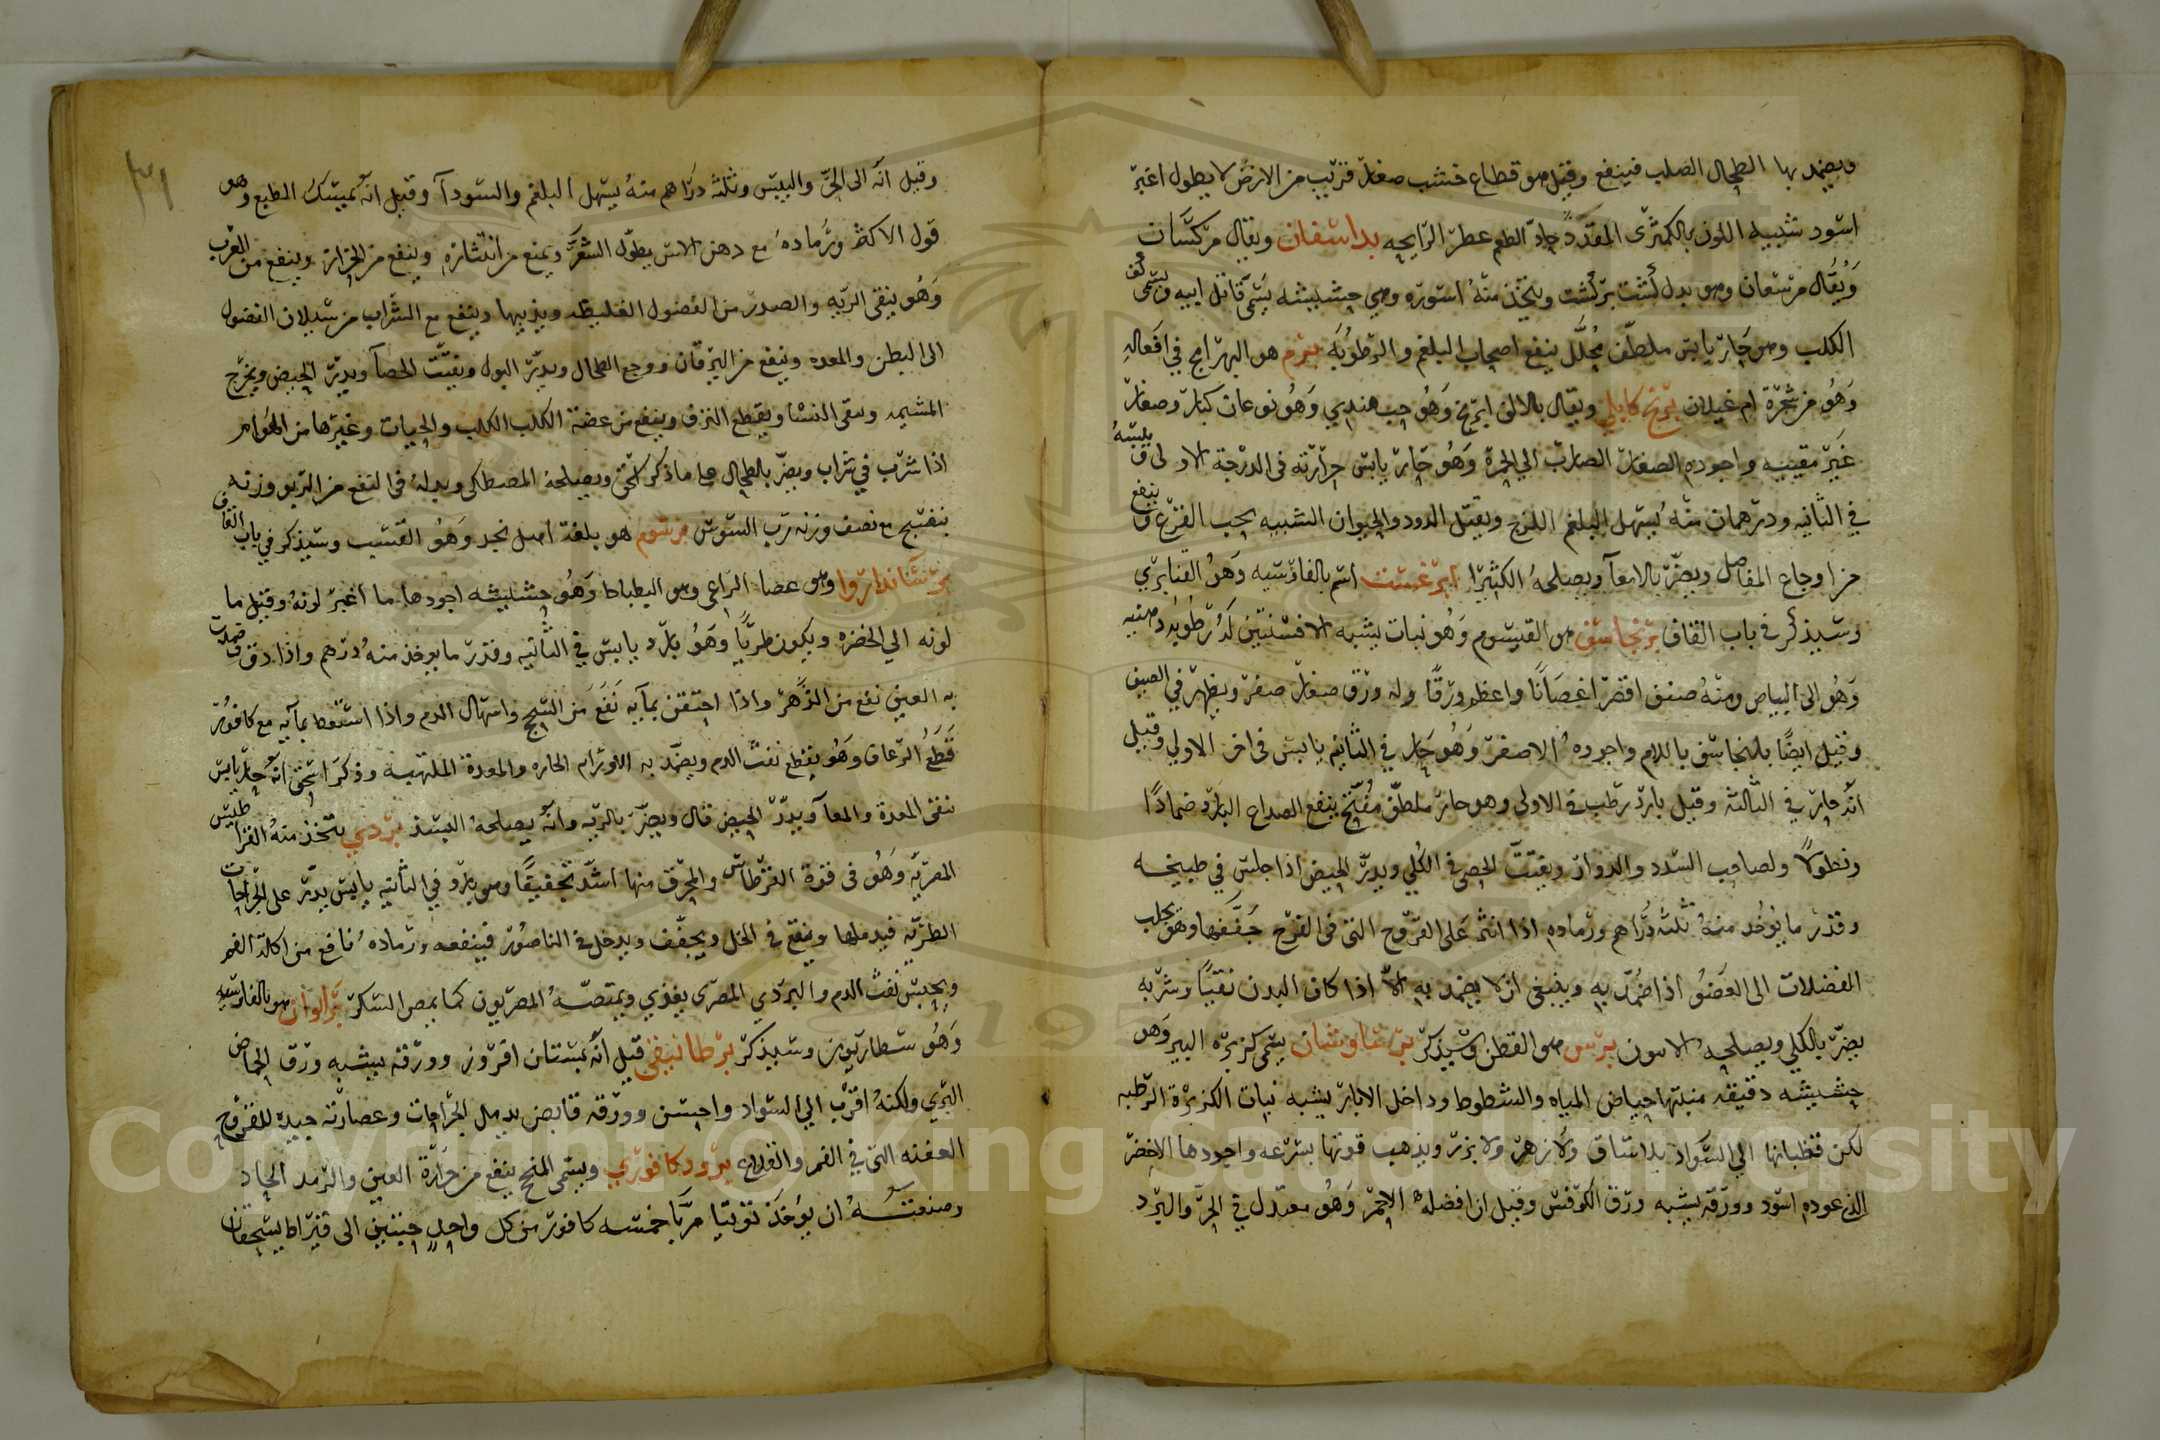 ويضمد بها الطحال الصلب فينفع وقيل هو قطاع خشب صغار قريب من الارض لا يطول اغبر
اسود شبيه اللون بالكمثرى المقدد حاد الطعم عطر الرايحه بداشفان ويقال مركسان
ويقال مرشعان وهو بدل كشت بركشت ويتخذ منه اسوره وهي حشيشه يسمى قاتل ابيه ويسمى كف
الكلب وهو حار يابس ملطف محلل ينفع اصحاب البلغم والرطوبة برم هو البهرامج في افعاله
وهو من شجرة ام غيلان برنج كابلي ويقال بالالف ابرنج وهو حب هندي وهو نوعان كبار وصغار
غير مقيييه واجوده الصغار الضارب الى الحمرة وهو حار يابس حرارته في الدرجة الاولى ويبسه
في الثانيه ودرهمان منه يسهل البلغم اللزج ويقتل الدود والحيوان الشبيه بحب القرع وينفع
من اوجاع المفاصل ويضر بالامعآ ويصلحه الكثيرا ابرغشت اسم بالفارسيه وهو القنابري
وسيذكر في باب القاف برنجاسف هو القيسوم وهو نبات يشبه الافسنتين له رطوبة دهنيه
وهو الى البياض ومنه صنف اقصر اغصانا واعظم ورقا وله ورق صغار صفر ويظهر في الصيف
وقيل ايضا بلنجاسف باللام واجوده الاصفر وهو حار في الثانيه يابس في اخر الاولى وقيل
انه حار في الثالثه وقيل بارد رطب في الاولى وهو حار ملطف مفتح ينفع الصداع البارد ضمادا
ونطولا ولصاحب السدد والدوار ويفتت الحصى في الكلي ويدر الحيض اذا جلس في طبيخه
وقدر ما يوخذ منه ثلثه دراهم ورماده اذا انثر على القروح التي في الفرج جففها وقد يجلب
الفضلات الى العضو اذا ضمد به وينبغي ان لا يضمد به الا اذا كان البدن نقيا وشربه
يضر بالكلي ويصلحه الانسون برس هو القطن وسيذكر برشاوشان يسمى كزبرة البير وهى
حشيشه دقيقه منبتها حياض المياه والشطوط وداخل الابار يشبه نبات الكزبرة الرطبه
لكن قضبانها الى السواد بلا ساق ولا زهر ولا بزر ويذهب قوتها بسرعه واجودها الاخضر
الذي عوده اسود وورقه يشبه ورق الكرفس وقيل ان افضله الاحمر وهو معتدل في الحر والبرد
وقيل انه الى الحر واليبس وثلثه دراهم منه يسهل البلغم والسودآ وقيل انه يمسك الطبع وهو
قول الاكثر ورماده مع دهن الاس يطول الشعر ويمنع من انتثاره وينفع من الحزاز وينفع من الغرب
وهو ينقى الريه والصدر من الفضول الغليظه ويذيبها وينفع مع الشراب من سيلان الفضول
الى البطن والمعده وينفع من اليرقان ووجع الطحال ويدر البول ويفتت الحصآ ويدر الحيض ويخرج
المشيمه وينقى النفسا ويقطع النزف وينفع من عضة الكلب الكلب والحيات وغيرها من الهوام
اذا شرب في شراب ويضر بالطحال على ما ذكر اسحق ويصلحه المصطكي وبدله في النفع من الربو وزنه
بنفسج مع نصف وزنه رب السوس برشوم هو بلغة اهل نجد وهو القسب وسيذكر في باب القاف
برشياندارو وهو عصا الراعي وهو البطباط وهو حشيشه اجودها ما اغبر لونه وقيل ما
لونه الى الخضره ويكون طريا وهو بارد يابس في الثانيه وقدر ما يوخذ منه درهم واذا دق وضمدت
به العين نفع من الذهر واذا احتقن بمآيه نفع من السحج واسهال الدم واذا استعط بمآيه مع كافور
قطع الرعاف وهو يقطع نفث الدم ويضمد به الاورام الحاره والمعدة الملتهبة وذكر اسحق انه حار يابس
ينقى المعدة والمعآ ويدر الحيض قال ويضر بالريه وانه يصلحه البسد بردي يتخذ منه القراطيس
المصريه وهو في قوة القرطاس والمحرق منها اشد تجفيفا وهو بارد في الثانيه يابس يدر على الجراحات
الطريه فيدملها وينقع في الخل ويجفف ويدخل في الناصور فينفعه ورماده نافع من اكلة الفم
ويحبس نفث الدم والبردي المصري يغذي ويمتصه المصريون كما يمص السكر برانوان هو بالفارسيه
وهو شطاريون وسيذكر برطانيقى قيل انه بستان افروز وورقه يشبه ورق الحماض
البري ولكنه اقرب الى السواد واحسن وورقه قابض يدمل الجراحات وعصارته جيده للقروح
العفنه التي في الفم والقلاع برود كافوري ويسمى المنجح ينفع من حرارة العين والرمد الحاد
وصنعته ان يوخذ توتيا مربا خمسه كافور من كل واحد حبتين الى قيراط يسحقان